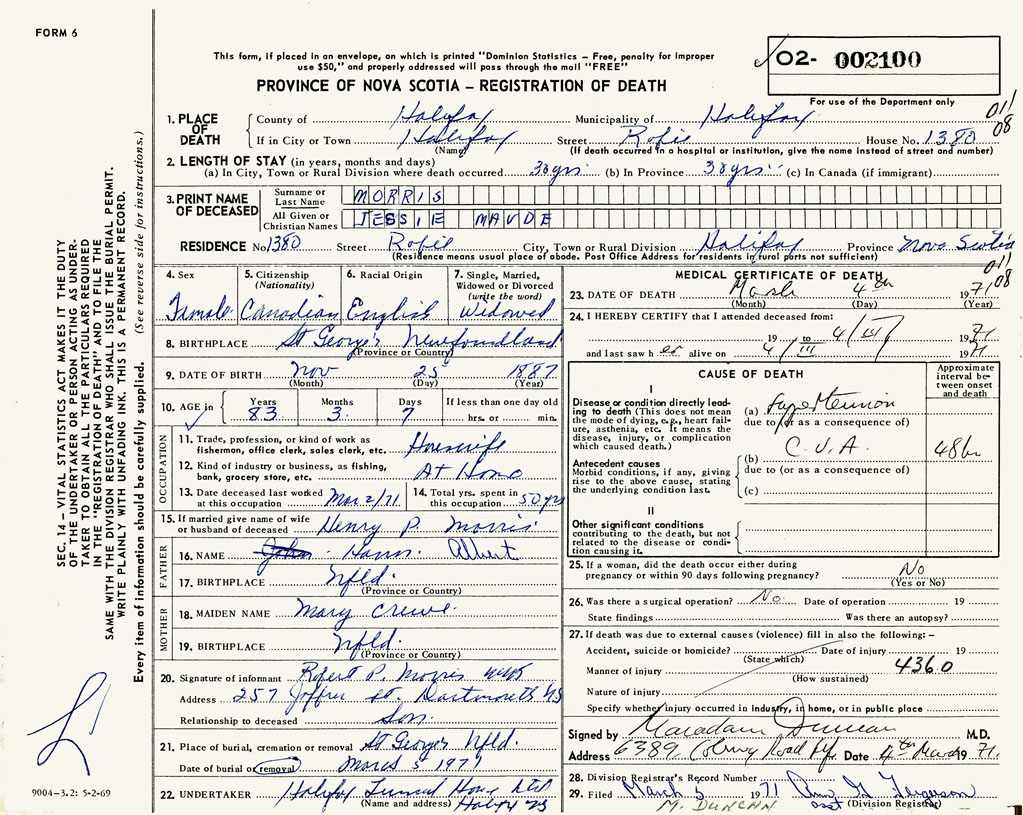 FORM 6
This form, if placed in an envelope, on which is printed "Dominion Statistics – Free, penalty for improper
use $50," and properly addressed will pass through the mail "FREE"
O2- 002100
PROVINCE OF NOVA SCOTIA – REGISTRATION OF DEATH
For use of the Department only
011
08
1. PLACE OF DEATH
County of Halifax Municipality of Halifax
If in City or Town Halifax Street Rofie House No. 1380
(Name) (If death occurred in a hospital or institution, give the name instead of street and number)
2. LENGTH OF STAY (in years, months and days)
(a) In City, Town or Rural Division where death occurred 30 yrs (b) In Province 30 yrs (c) In Canada (if immigrant)
3. PRINT NAME OF DECEASED
Surname or Last Name MORRIS
All Given or Christian Names JESSIE MAUDE
RESIDENCE No. 1380 Street Rofie City, Town or Rural Division Halifax Province Nova Scotia
(Residence means usual place of abode. Post Office Address for residents in rural parts not sufficient)
011
08
4. Sex Female
5. Citizenship (Nationality) Canadian
6. Racial Origin English
7. Single, Married, Widowed or Divorced (write the word) Widowed
8. BIRTHPLACE St George's Newfoundland
(Province or Country)
9. DATE OF BIRTH Nov 25 1887
(Month) (Day) (Year)
10. AGE in Years 83 Months 3 Days 7 If less than one day old hrs. or min.
OCCUPATION
11. Trade, profession, or kind of work as
fisherman, office clerk, sales clerk, etc. Housewife
12. Kind of industry or business, as fishing,
bank, grocery store, etc. At Home
13. Date deceased last worked
at this occupation Mar 2/71
14. Total yrs. spent in
this occupation 50 yrs
15. If married give name of wife
or husband of deceased Henry P. Morris
FATHER
16. NAME Albert
17. BIRTHPLACE Nfld.
(Province or Country)
MOTHER
18. MAIDEN NAME Mary Crewe
19. BIRTHPLACE Nfld.
(Province or Country)
20. Signature of informant Robert P. Morris
Address 257 Joffre St. Dartmouth NS
Relationship to deceased Son
21. Place of burial, cremation or removal St George's Nfld.
Date of burial or removal March 5 1971
22. UNDERTAKER Halifax Funeral Home Ltd
(Name and address) Halifax NS
MEDICAL CERTIFICATE OF DEATH
23. DATE OF DEATH March 4th 1971
(Month) (Day) (Year)
24. I HEREBY CERTIFY that I attended deceased from:
19 to 4/III/ 1971
and last saw her alive on 4/III 1971
CAUSE OF DEATH
Approximate interval between onset and death
I
Disease or condition directly leading to death (This does not mean the mode of dying, e.g., heart failure, asthenia, etc. It means the disease, injury, or complication which caused death.)
(a) Hypertension
due to (or as a consequence of)
(b) C.V.A. 48 hr
due to (or as a consequence of)
(c)
Antecedent causes
Morbid conditions, if any, giving rise to the above cause, stating the underlying condition last.
II
Other significant conditions contributing to the death, but not related to the disease or condition causing it.
25. If a woman, did the death occur either during
pregnancy or within 90 days following pregnancy? No
(Yes or No)
26. Was there a surgical operation? No. Date of operation 19
State findings Was there an autopsy?
27. If death was due to external causes (violence) fill in also the following:–
Accident, suicide or homicide? Date of injury 19
(State which)
Manner of injury 4360
(How sustained)
Nature of injury
Specify whether injury occurred in industry, in home, or in public place
Signed by Duncan M.D.
Address 6389 Coburg Road Date 4th March 1971.
28. Division Registrar's Record Number
29. Filed March 5 1971 Ferguson
M. DUNCAN asst (Division Registrar)
SEC. 14 – VITAL STATISTICS ACT MAKES IT THE DUTY
OF THE UNDERTAKER OR PERSON ACTING AS UNDERTAKER TO OBTAIN ALL THE PARTICULARS REQUIRED
IN THE "REGISTRATION OF DEATH" AND TO FILE THE
SAME WITH THE DIVISION REGISTRAR WHO SHALL ISSUE THE BURIAL PERMIT.
WRITE PLAINLY WITH UNFADING INK. THIS IS A PERMANENT RECORD.
Every item of information should be carefully supplied. (See reverse side for instructions.)
9004–3.2: 5-2-69